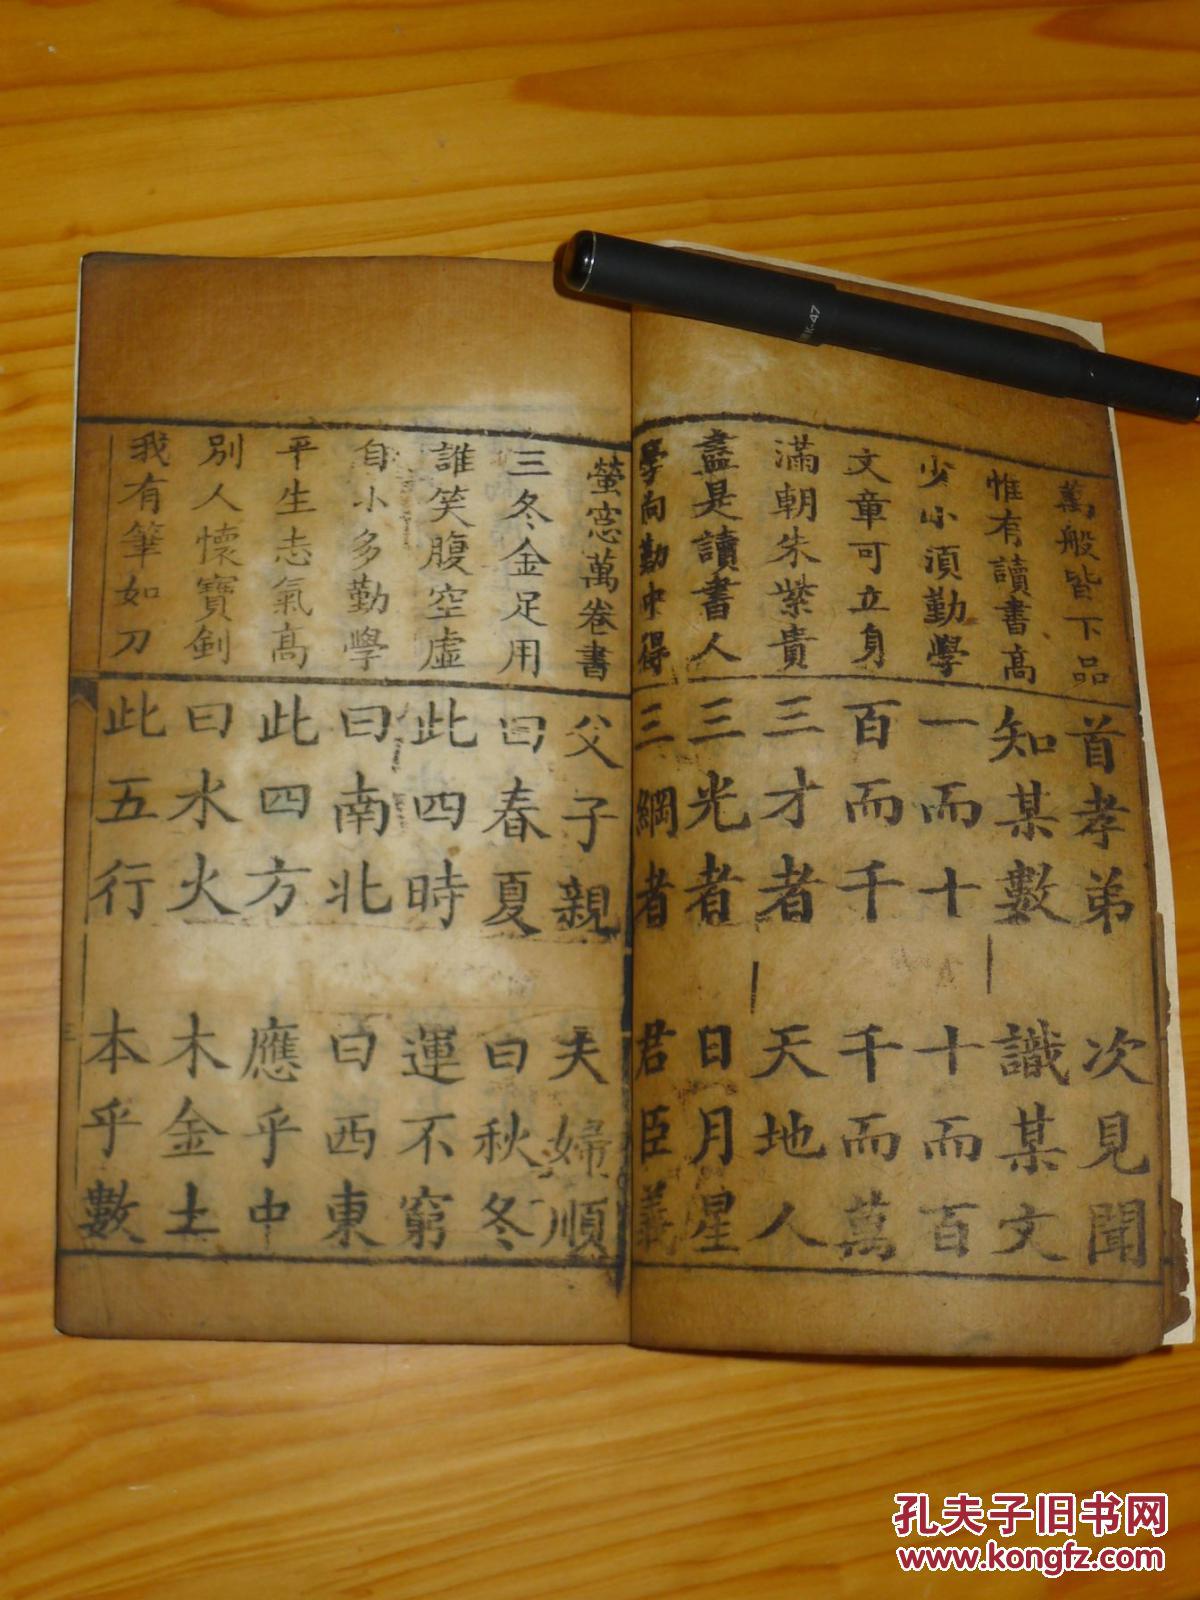 萬般皆下品
惟有讀書高
少小須勤學
文章可立身
滿朝朱紫貴
盡是讀書人
學向勤中得
螢窓萬卷書
三冬金足用
誰笑腹空虛
自小多勤學
平生志氣高
別人懷寶劍
我有筆如刀
首孝弟 次見聞
知某數 識某文
一而十 十而百
百而千 千而萬
三才者 天地人
三光者 日月星
三綱者 君臣義
父子親 夫婦順
曰春夏 曰秋冬
此四時 運不窮
曰南北 曰西東
此四方 應乎中
曰水火 木金土
此五行 本乎數
三
K-47
孔夫子旧书网
www.kongfz.com